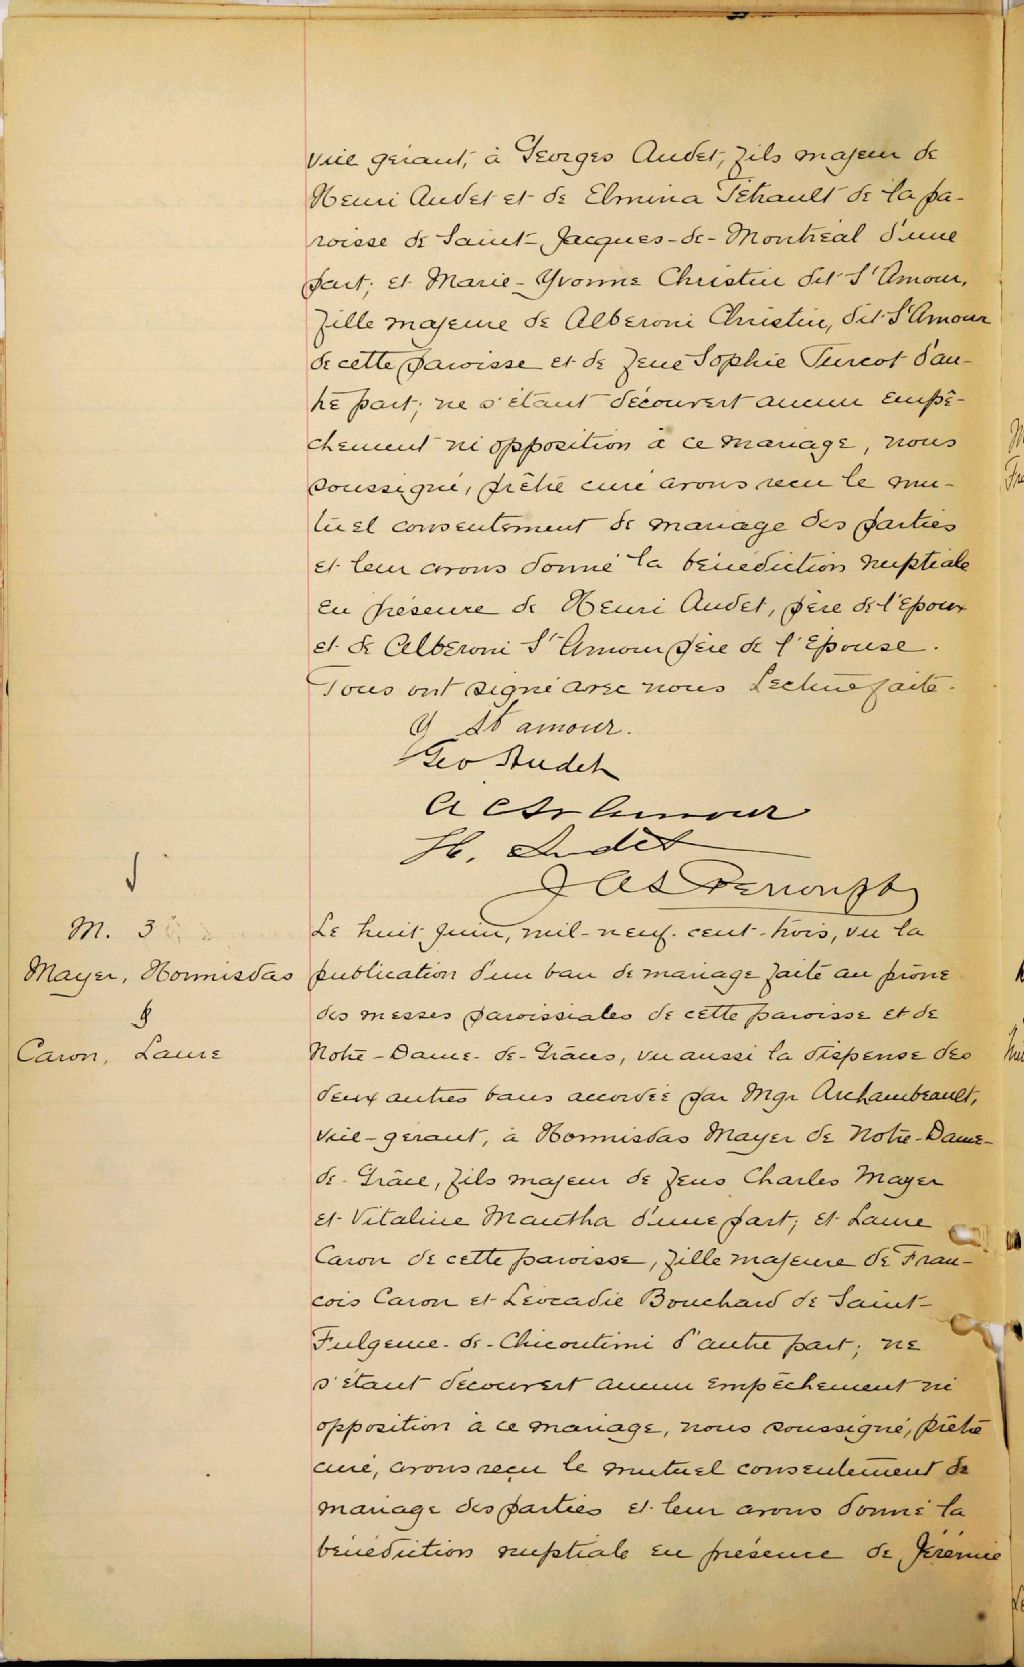 vice gérant, à Georges Audet, fils majeur de
Henri Audet et de Elmina Tétrault de la pa-
roisse de Saint-Jacques-de-Montréal d'une
part; et Marie-Yvonne Christin dit St Amour,
fille majeure de Alberoni Christin, dit St Amour
de cette paroisse et de feue Sophie Turcot d'au-
tre part; ne s'étant découvert aucun empê-
chement ni opposition à ce mariage, nous
soussigné, prêtre curé avons reçu le mu-
tuel consentement de mariage des parties
et leur avons donné la bénédiction nuptiale
en présence de Henri Audet, père de l'époux
et de Alberoni St Amour père de l'épouse.
Tous ont signé avec nous Lecture faite.
Y St amour.
Geo Audet
A C St Amour
H. Audet
J A S Perron
M. 3
Mayer, Hormisdas
&
Caron, Laure
Le huit juin, mil-neuf-cent-trois, vu la
publication d'un ban de mariage faite au prône
des messes paroissiales de cette paroisse et de
Notre-Dame-de-Grâces, vu aussi la dispense des
deux autres bans accordée par Mgr Archambeault,
vice-gérant, à Hormisdas Mayer de Notre-Dame-
de-Grâce, fils majeur de feus Charles Mayer
et Vitaline Mantha d'une part; et Laure
Caron de cette paroisse, fille majeure de Fran-
cois Caron et Léocadie Bouchard de Saint-
Fulgence-de-Chicoutimi d'autre part; ne
s'étant découvert aucun empêchement ni
opposition à ce mariage, nous soussigné, prêtre
curé, avons reçu le mutuel consentement de
mariage des parties et leur avons donné la
bénédiction nuptiale en présence de Jérémie